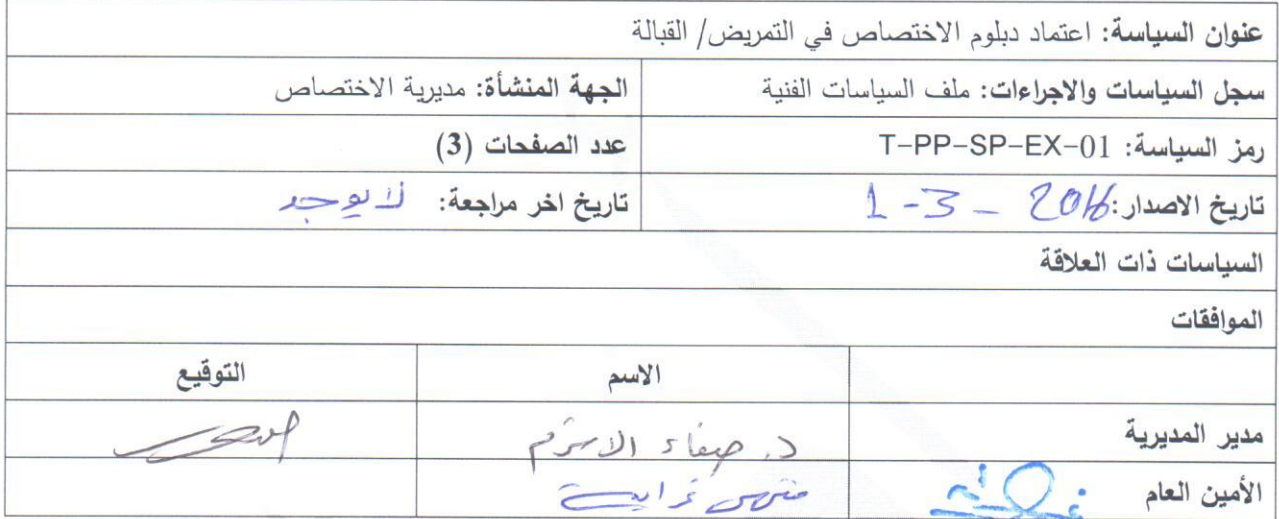 عنوان السياسة: اعتماد دبلوم الاختصاص في التمريض/ القبالة
سجل السياسات والاجراءات: ملف السياسات الفنية
الجهة المنشأة: مديرية الاختصاص
رمز السياسة: T-PP-SP-EX-01
عدد الصفحات (3)
تاريخ الاصدار: 1-3-2016
تاريخ اخر مراجعة: لا يوجد
السياسات ذات العلاقة
الموافقات
الاسم
التوقيع
مدير المديرية
د. صفاء
الأمين العام